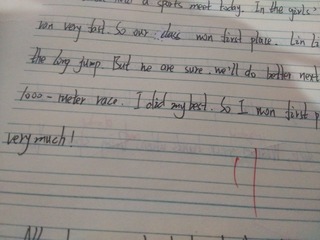 a sports meet today. In the girls'
ran very fast. So our class won first place. Lin Li
the long jump. But we are sure, we'll do better next
1000-meter race. I did my best. So I won first p
very much!